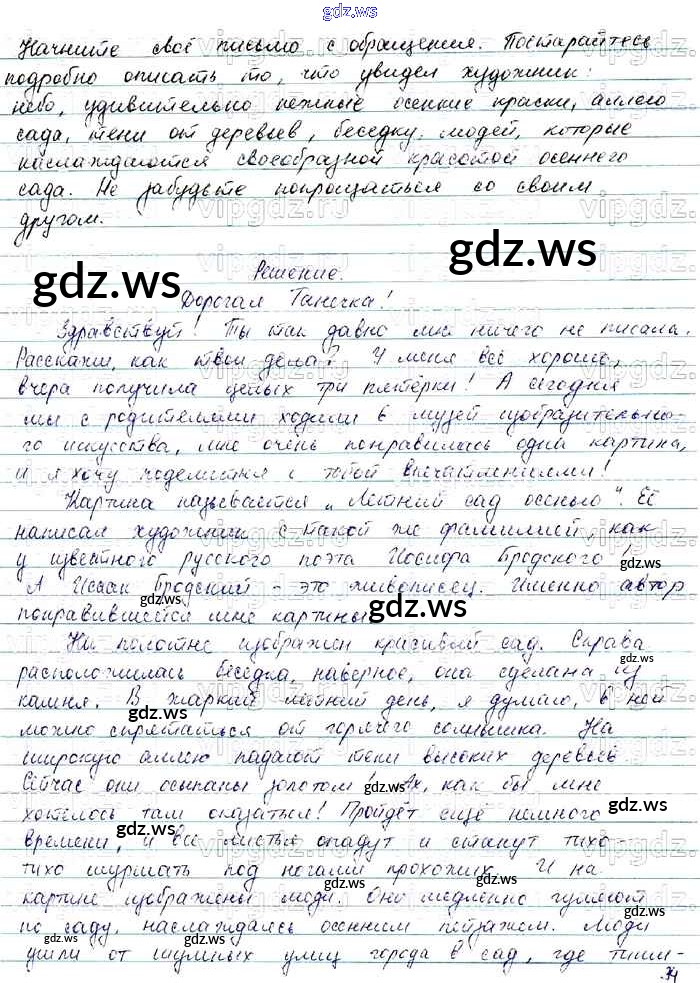 gdz.ws
Начните своё письмо с обращения. Постарайтесь
подробно описать то, что увидел художник:
небо, удивительно нежные осенние краски, аллею
сада, тени от деревьев, беседку, людей, которые
наслаждаются своеобразной красотой осеннего
сада. Не забудьте попрощаться со своим
другом.
Решение.
gdz.ws
gdz.ws
Дорогая Танечка!
Здравствуй! Ты так давно мне ничего не писала.
Расскажи, как твои дела? У меня всё хорошо,
вчера получила целых три пятёрки! А сегодня
мы с родителями ходили в музей изобразительно-
го искусства, мне очень понравилась одна картина,
и я хочу поделиться с тобой впечатлениями!
Картина называется „Летний сад осенью“. Её
написал художник с такой же фамилией, как
у известного русского поэта Иосифа Бродского!
А Исаак Бродский - это живописец. Именно автор
понравившейся мне картины.
gdz.ws
gdz.ws
gdz.ws
На полотне изображён красивый сад. Справа
расположилась беседка, наверное, она сделана из
камня. В жаркий летний день, я думаю, в ней
можно спрятаться от горячего солнышка. На
широкую аллею падают тени высоких деревьев.
Сейчас они осыпаны золотом! Ах, как бы мне
хотелось там оказаться! Пройдёт ещё немного
времени, и все листья опадут и станут тихо-
тихо шуршать под ногами прохожих. И на
картине изображены люди. Они медленно гуляют
по саду, наслаждаясь осенним пейзажем. Люди
ушли от шумных улиц города в сад, где тиши-
34